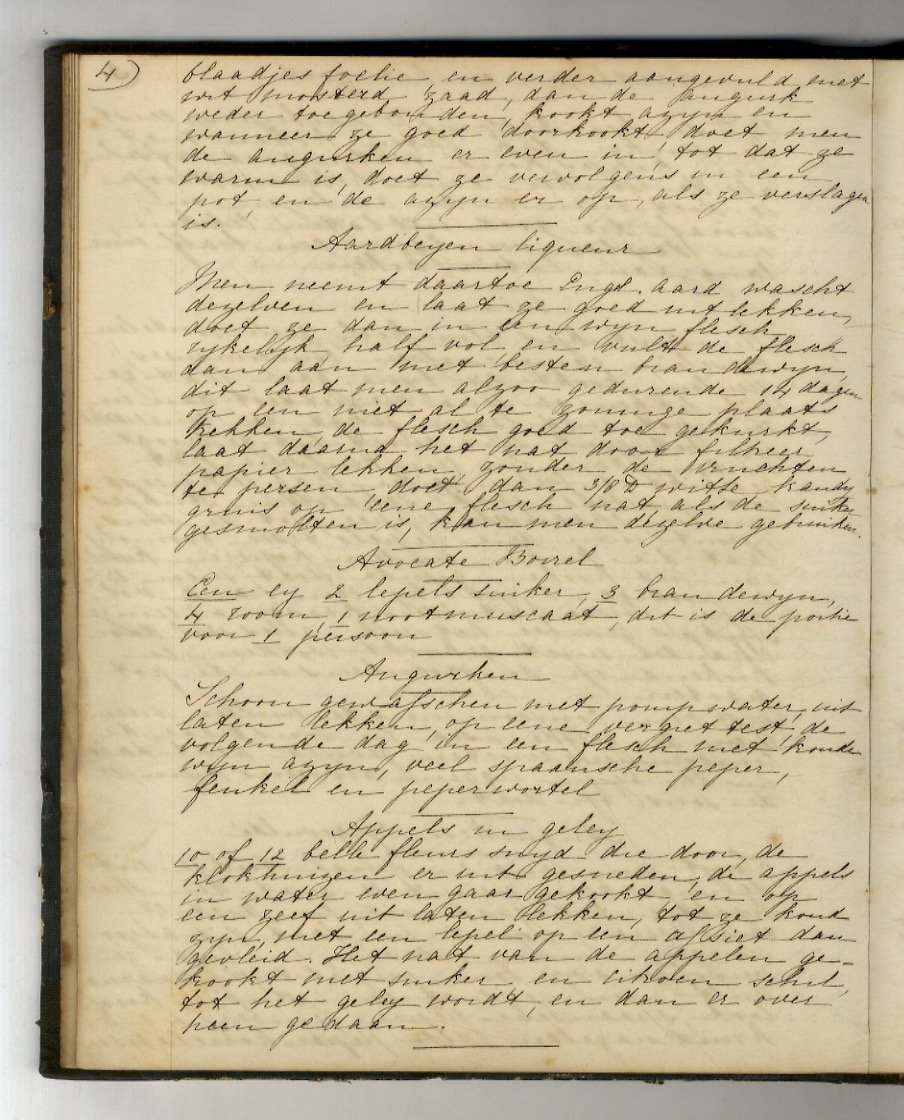 4)
blaadjes foelie en verder aangevuld met
wit mosterd zaad, dan de angurk
weder toegebonden, kookt azyn en
wanneer ze goed doorkookt doet men
de angurken er even in, tot dat ze
warm is, doet ze vervolgens in een
pot en de azyn er op, als ze verslagen
is.
Aardbeyen liqueur
Men neemt daartoe Engel. aard wascht
dezelven en laat ze goed uitlekken,
doet ze dan in een wyn flesch
rykelyk half vol en vult de flesch
dan aan met besten brandewyn
dit laat men alzoo gedurende 14 dagen
op een niet al te zonnige plaats
trekken, de flesch goed toe gekurkt,
laat daarna het nat door filtreer
papier lekken, zonder de vruchten
te persen, doet dan 3/8 ℔ witte kandy
gruis op eene flesch nat, als de suiker
gesmolten is, kan men dezelve gebruiken.
Avocate Borrel
Een ey 2 lepels suiker 3 brandewyn,
4 room 1 nootmuscaat, dit is de portie
voor 1 persoon
Angurken
Schoon gewasschen met pompwater, uit
laten lekken, op eene vergiet test, de
volgende dag in een flesch met koude
wyn azyn, veel spaansche peper,
fenkel en peperwortel
Appels in geley
10 of 12 belle fleurs snyd die door, de
klokhuizen er uit gesneden, de appels
in water even gaar gekookt, en op
een zeef uit laten lekken, tot ze koud
zyn, met een lepel op een assiet dan
gevleid. Het nat van de appelen ge-
kookt met suiker en citroen schil,
tot het geley wordt, en dan er over
heen gedaan.